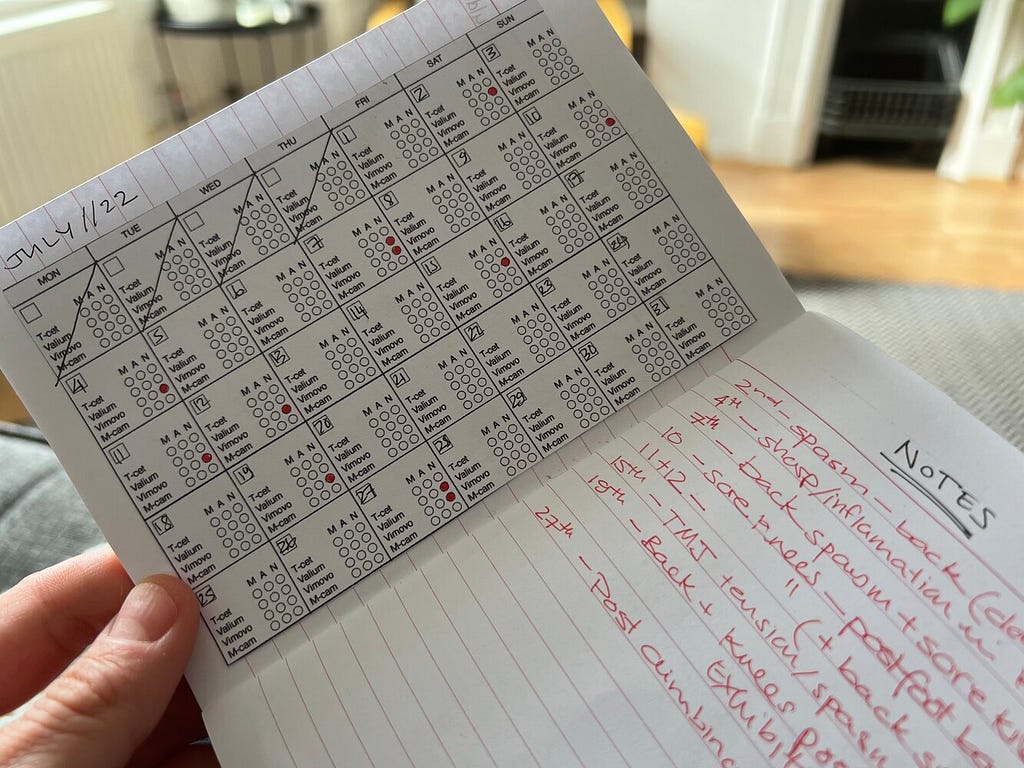 JULY//22
MON TUE WED THU FRI SAT SUN
M A N M A N M A N M A N 1 M A N 2 M A N 3 M A N
T-cet T-cet T-cet T-cet T-cet T-cet T-cet
Valium Valium Valium Valium Valium Valium Valium
Vimovo Vimovo Vimovo Vimovo Vimovo Vimovo Vimovo
M-cam M-cam M-cam M-cam M-cam M-cam M-cam
4 M A N 5 M A N 6 M A N 7 M A N 8 M A N 9 M A N 10 M A N
T-cet T-cet T-cet T-cet T-cet T-cet T-cet
Valium Valium Valium Valium Valium Valium Valium
Vimovo Vimovo Vimovo Vimovo Vimovo Vimovo Vimovo
M-cam M-cam M-cam M-cam M-cam M-cam M-cam
11 M A N 12 M A N 13 M A N 14 M A N 15 M A N 16 M A N 17 M A N
T-cet T-cet T-cet T-cet T-cet T-cet T-cet
Valium Valium Valium Valium Valium Valium Valium
Vimovo Vimovo Vimovo Vimovo Vimovo Vimovo Vimovo
M-cam M-cam M-cam M-cam M-cam M-cam M-cam
18 M A N 19 M A N 20 M A N 21 M A N 22 M A N 23 M A N 24 M A N
T-cet T-cet T-cet T-cet T-cet T-cet T-cet
Valium Valium Valium Valium Valium Valium Valium
Vimovo Vimovo Vimovo Vimovo Vimovo Vimovo Vimovo
M-cam M-cam M-cam M-cam M-cam M-cam M-cam
25 M A N 26 M A N 27 M A N 28 M A N 29 M A N 30 M A N 31 M A N
T-cet T-cet T-cet T-cet T-cet T-cet T-cet
Valium Valium Valium Valium Valium Valium Valium
Vimovo Vimovo Vimovo Vimovo Vimovo Vimovo Vimovo
M-cam M-cam M-cam M-cam M-cam M-cam M-cam
NOTES
2nd - spasm - back
4th - sharp/inflamation in
7th - back spasm + sore
10 - sore knees -
11+12 - " " (+ back
15th - TMJ tension/spasm
18th - Back + knees
27th - Post climbing